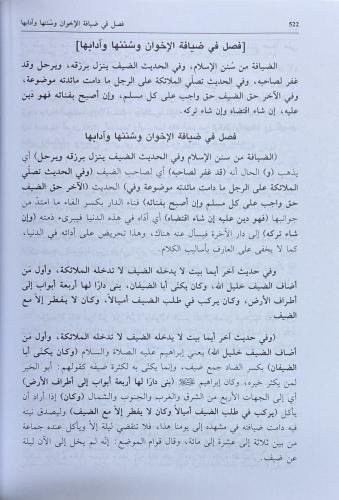 522
فصل في ضيافة الإخوان وسُننها وآدابها
[فصل في ضيافة الإخوان وسُننها وآدابها]
الضيافة من سُنن الإسلام، وفي الحديث الضيف ينزل برزقه، ويرحل وقد
غفر لصاحبه، وفي الحديث تصلّي الملائكة على الرجل ما دامت مائدته موضوعة، وفي
الآخر حق الضيف حق واجب على كل مسلم، وإن أصبح بفنائه فهو دَين
عليه، إن شاء اقتضاه وإن شاء تركه.
فصل في ضيافة الإخوان وسُننها وآدابها
(الضيافة من سُنن الإسلام وفي الحديث الضيف ينزل برزقه ويرحل) أي
يذهب (و) الحال أنه (قد غفر لصاحبه) أي لصاحب الضيف (وفي الحديث تصلّي
الملائكة على الرجل ما دامت مائدته موضوعة وفي) الحديث (الآخر حق الضيف
حق واجب على كل مسلم وإن أصبح بفنائه) فناء الدار بكسر الفاء ما امتدّ من
جوانبها (فهو دَين عليه إن شاء اقتضاه) أي أدّاه في هذه الدنيا فيبرىء ذمته (وإن
شاء تركه) إلى دار الآخرة فيسأل عنه هنالك، وهذا تحريض على أدائه في الدنيا،
كما لا يخفى على العارف بأساليب الكلام.
وفي حديث آخر أيما بيت لا يدخله الضيف لا تدخله الملائكة، وأول مَن
أضاف الضيف خليل الله، وكان يكنى أبا الضيفان، بنى دارًا لها أربعة أبواب إلى
أطراف الأرض، وكان يركب في طلب الضيف أميالاً، وكان لا يفطر إلاّ مع
الضيف.
(وفي حديث آخر أيما بيت لا يدخله الضيف لا تدخله الملائكة، وأول مَن
أضاف الضيف خليل الله) يعني إبراهيم عليه الصلاة والسلام (وكان يكنى أبا
الضيفان) بكسر الضاد جمع ضيف، وإنما يكنى به لكثرة ضيفه كقولهم: أبو الخير
لمن يكثر خيره، وكان إبراهيم ﷺ (بنى دارًا لها أربعة أبواب إلى أطراف الأرض)
أي إلى الجهات الأربع من الشرق والغرب والجنوب والشمال (وكان) إذا أراد أن
يأكل (يركب في طلب الضيف أميالاً وكان لا يفطر إلاّ مع الضيف) ولصدق نيته
فيه دامت ضيافته في مشهده إلى يومنا هذا، فلا تنقضي ليلة إلاّ ويأكل عنده جماعة
من بين ثلاثة إلى عشرة إلى مائة، وقال قوام الموضع: إنه لم يخل إلى الآن ليلة
عن ضيف.